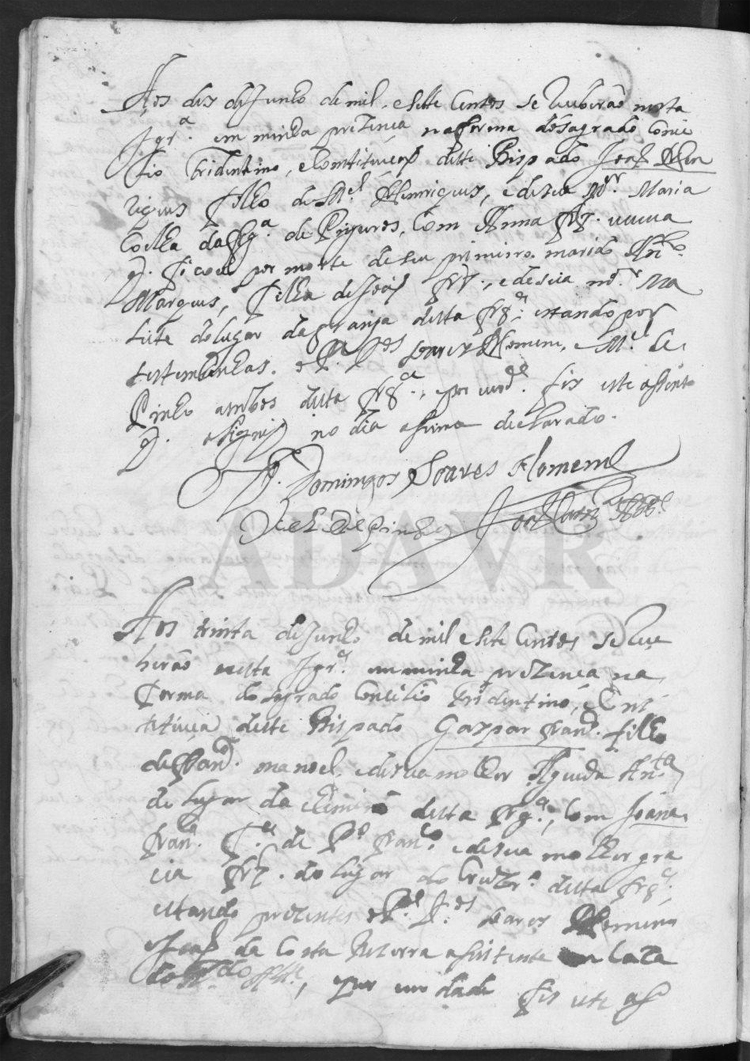 Aos dez de Junho de mil, e sette Centos se Receberão nesta
Igr.ª em minha prezença na forma do sagrado Conci
lio Tridentino, e Constituiçois deste Bispado Joaõ Hen
riques filho de M.el Henriques, e de sua m.er Maria
Coelha da frg.ª de Com Anna frz. viuva
q. ficou por morte de seu primeiro marido An.to
Marques, filha de Joaõ frz., e de sua m.er Ma
do lugar da granja desta frg.ª estando por
testemunhas. o P.e D.os Soares Homem, e M.el de
Pinho ambos desta frg.ª, e por verd.e fis este assento
q. assignei no dia assima declarado.
P. Domingos Soares Homem
M.el de Pinho
ADAVR
Aos trinta de Junho de mil e sete Centos se Rece
berão nesta Igr.ª em minha prezença na
forma do sagrado Concilio tridentino, e Cons
tituiçã deste Bispado Gaspar fran.co filho
de fran.co manoel, e de sua molher Agueda An.ta
do lugar da desta frg.ª, Com Joana
fran.ca f.ª de P.o fran.co e de sua molher gra
cia frz. do lugar do desta frg.ª
estando prezentes o P.e D.os Soares Homem
e Joaõ da Costa assistente em Caza
do e por verdade fis este as